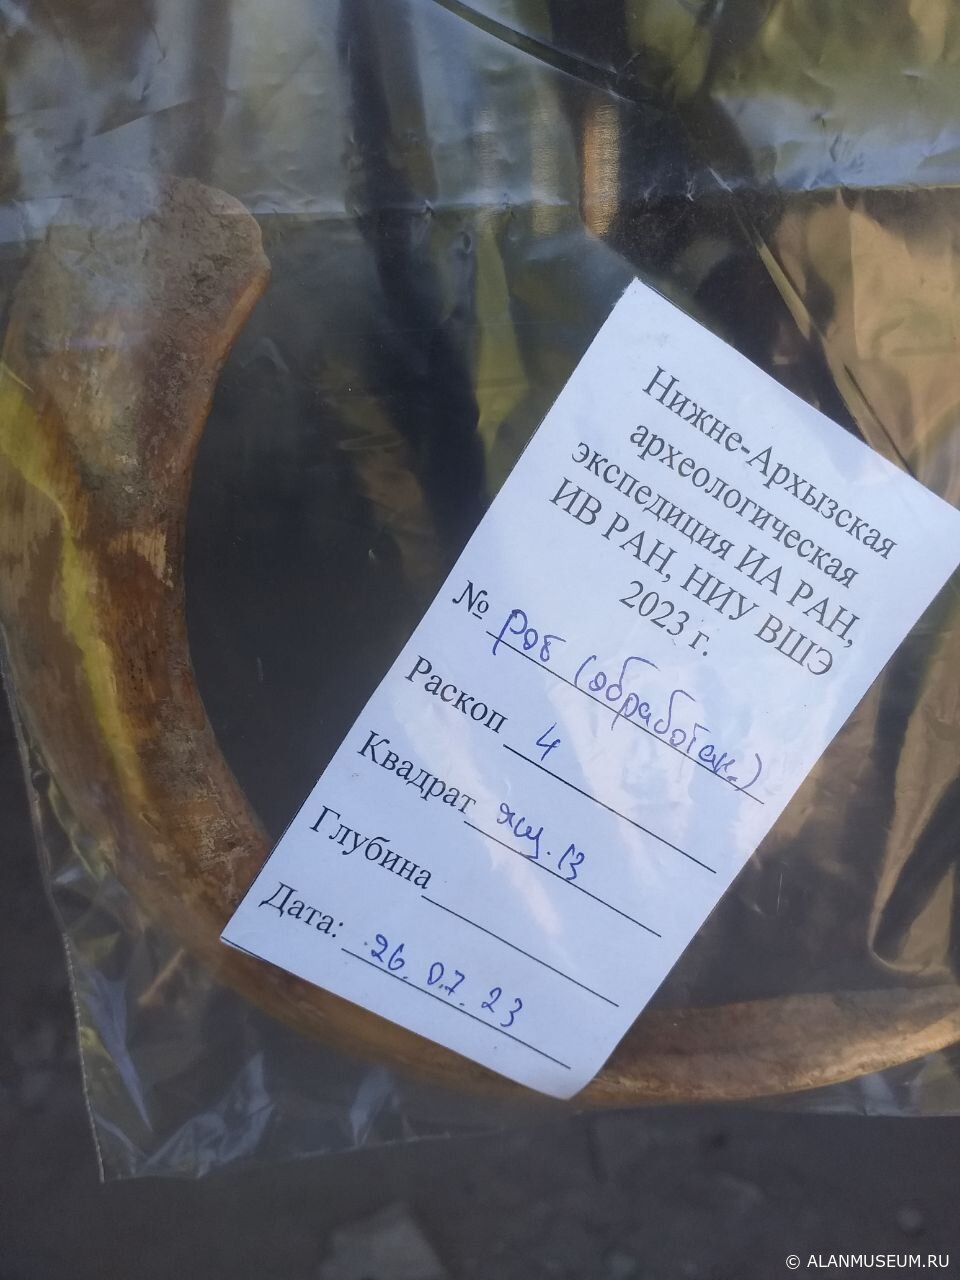 Нижне-Архызская
археологическая
экспедиция ИА РАН,
ИВ РАН, НИУ ВШЭ
2023 г.
№ рог (обработан.)
Раскоп 4
Квадрат
Глубина
Дата: 26.07.23
© ALANMUSEUM.RU